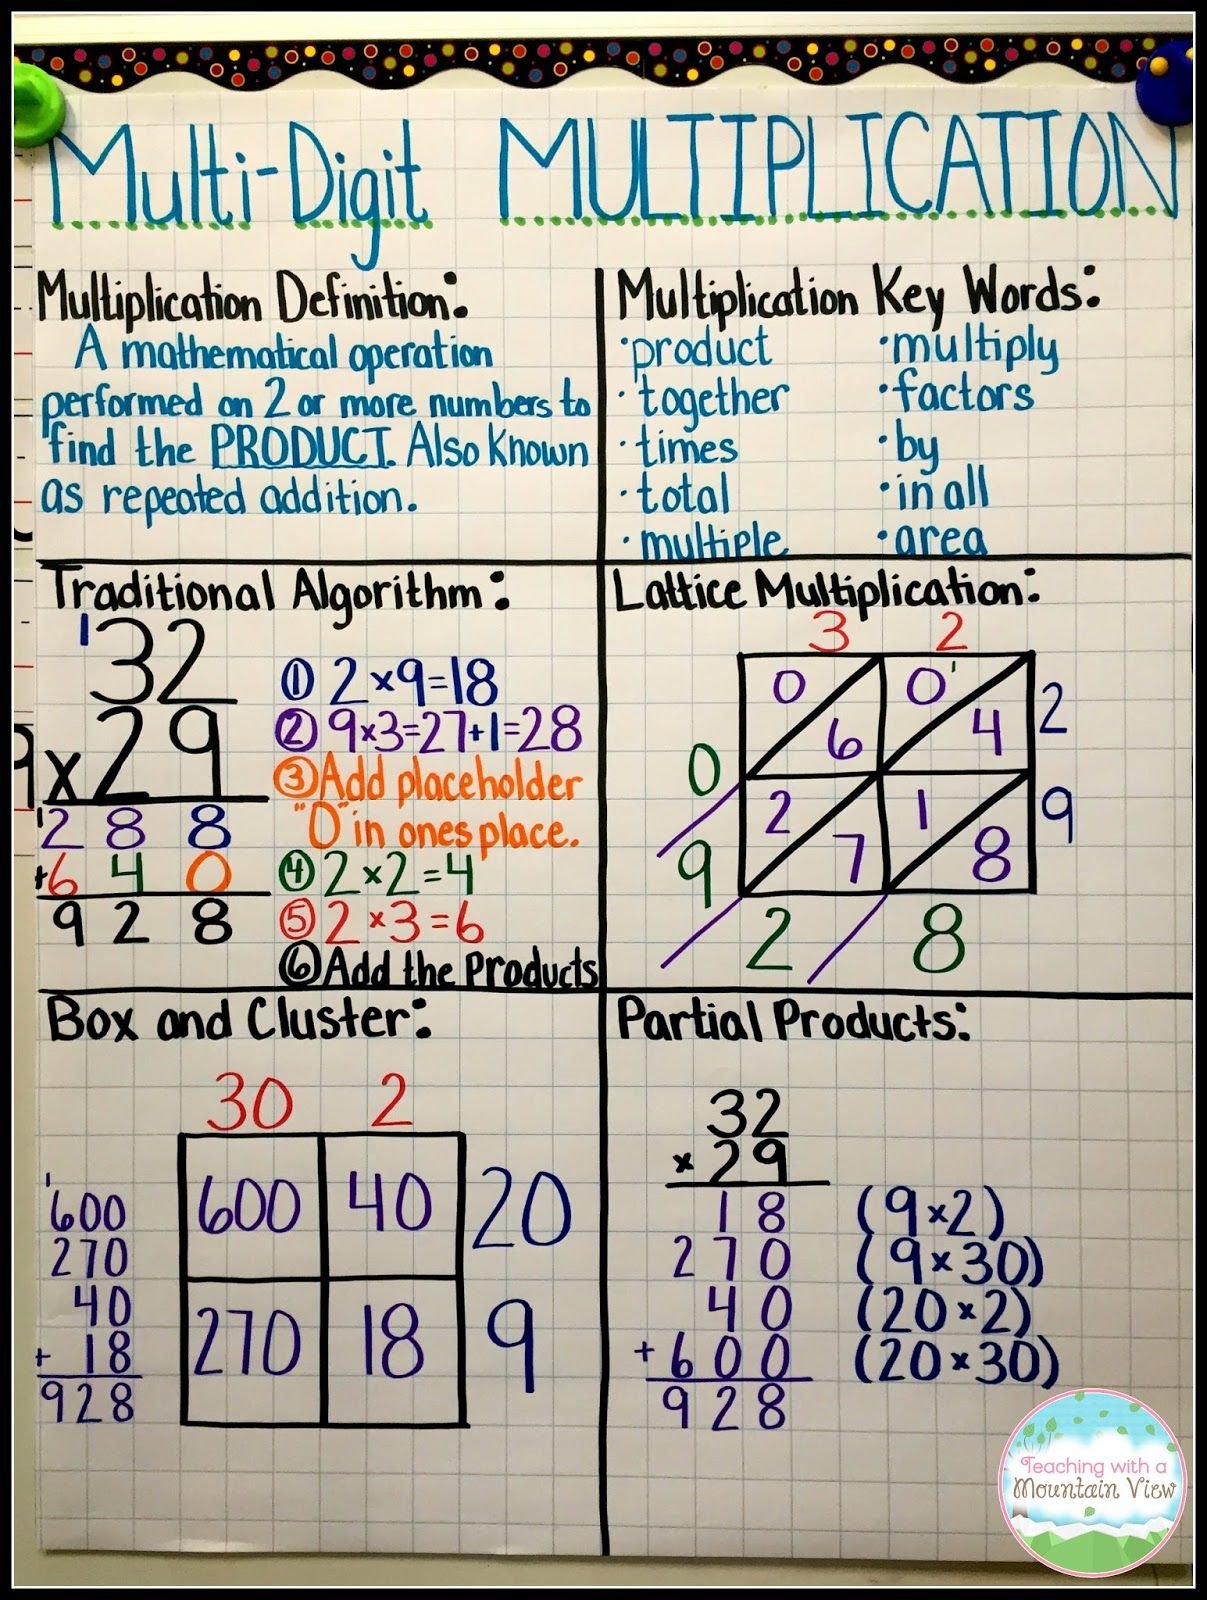 Multi-Digit MULTIPLICATION
Multiplication Definition:
A mathematical operation
performed on 2 or more numbers to
find the PRODUCT. Also known
as repeated addition.
Multiplication Key Words:
·product
·together
·times
·total
·multiple
·multiply
·factors
·by
·in all
·area
Traditional Algorithm:
1
32
x 29
1
288
+640
928
① 2×9=18
② 9×3=27+1=28
③ Add placeholder
"0" in ones place.
④ 2×2=4
⑤ 2×3=6
⑥ Add the Products
Lattice Multiplication:
3 2
0 0 1
6 4 2
0
2 1 9
7 8
9
2 8
Box and Cluster:
30 2
600 40 20
270 18 9
1
600
270
40
+ 18
928
Partial Products:
32
× 29
18 (9×2)
270 (9×30)
40 (20×2)
+600 (20×30)
928
Teaching with a
Mountain View